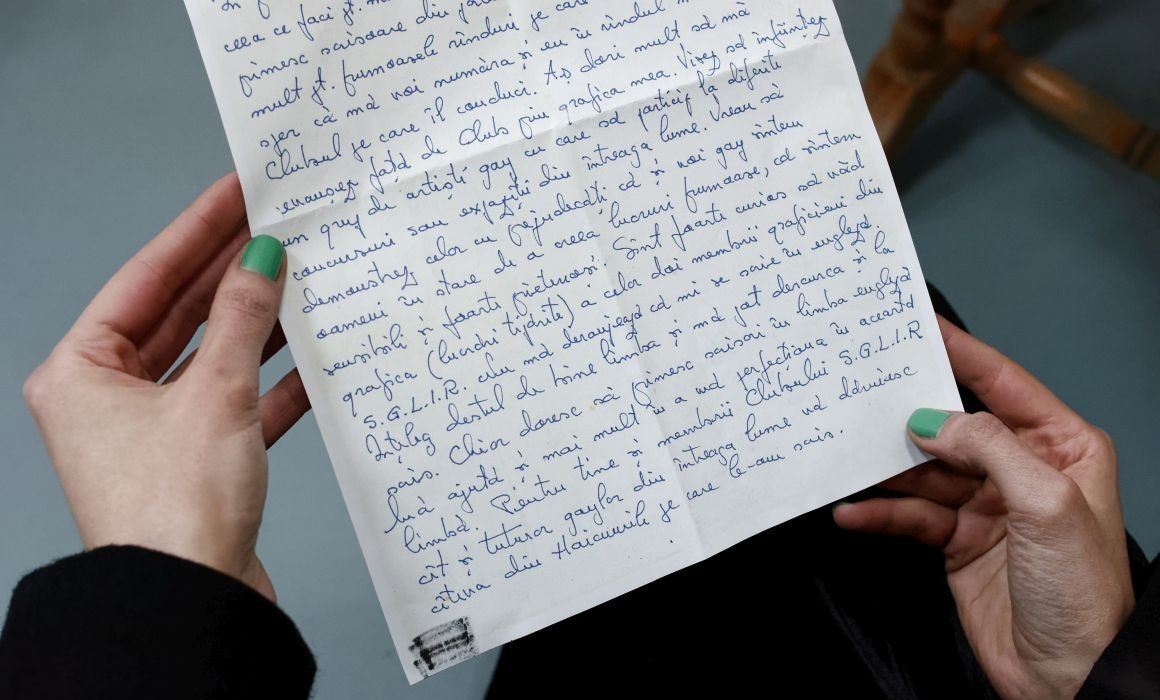 ceea ce faci și
primesc scrisoare din
mult și frumoasele rînduri pe care
sper că mă voi număra și eu în rîndul
Clubul pe care îl conduci. Aș dori mult să mă
remarchez față de Club prin grafica mea. Visez să înființez
un grup de artiști gay cu care să particip la diferite
concursuri sau expoziții din întreaga lume. Vreau să
demonstrez celor cu prejudecăți că și noi gay sîntem
oameni în stare de a creea lucruri frumoase, că sîntem
sensibili și foarte prietenosi. Sînt foarte curios să văd
grafica (lucrări tipărite) a celor doi membrii graficieni din
S.G.L.I.R. Nu mă deranjează că mi se scrie în engleză.
Înțeleg destul de bine limba și mă pot descurca și la
scris. Chiar doresc să primesc scrisori în limba engleză
mă ajută și mai mult în a mă perfecționa în această
limbă. Pentru tine și membrii Clubului S.G.L.I.R
cît și tuturor gaylor din întreaga lume vă dăruiesc
cîteva din Haicuurile pe care le-am scris.